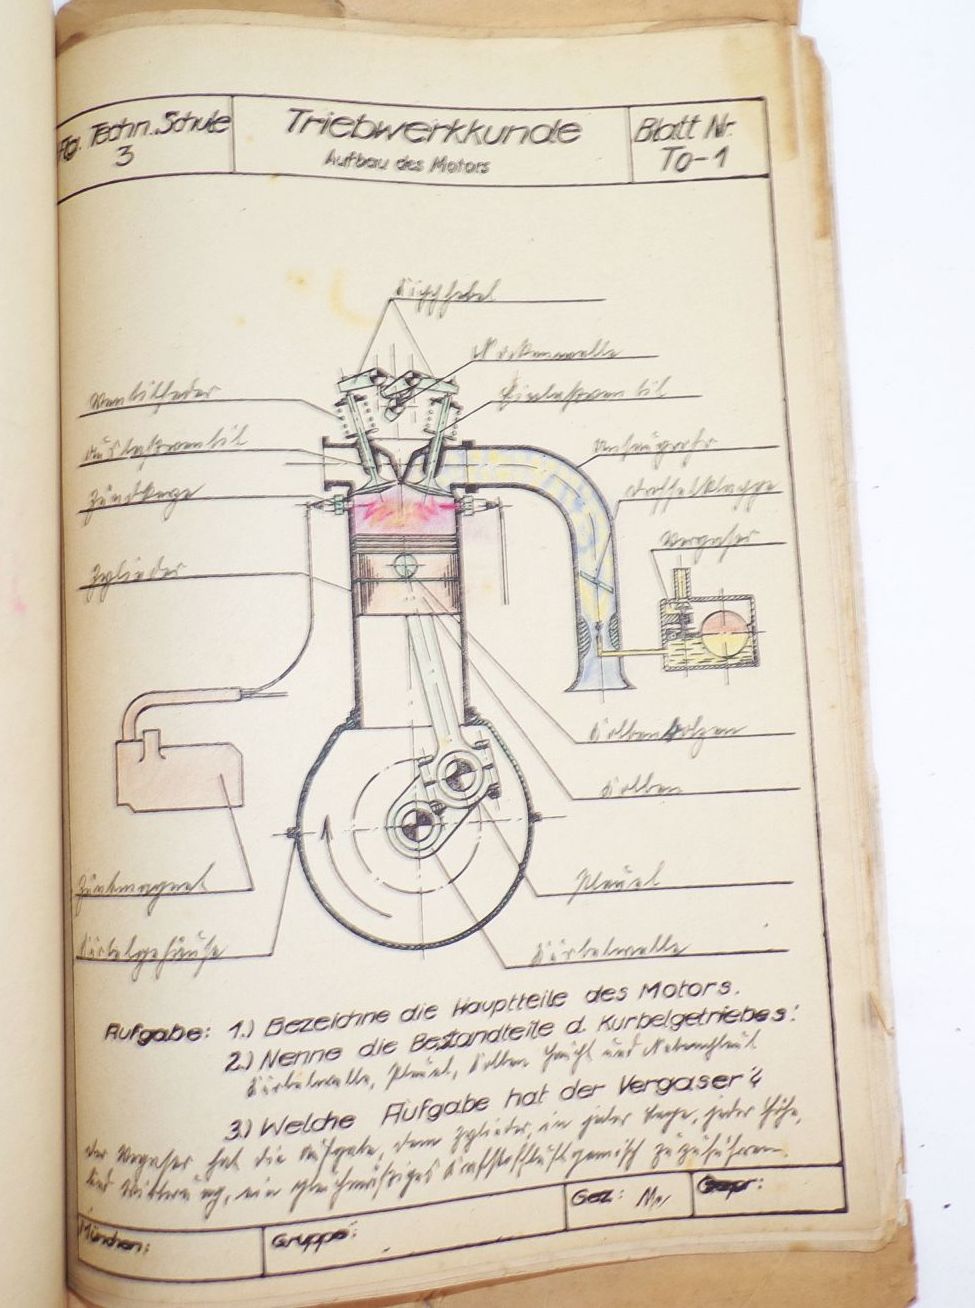 Flg. Techn. Schule
3
Triebwerkkunde
Aufbau des Motors
Blatt Nr.
To-1
Kipphebel
Nockenwelle
Ventilfeder
Einlaßventil
Auslaßventil
Ansaugrohr
Zündkerze
Drosselklappe
Vergaser
Zylinder
Kolbenbolzen
Kolben
Zündmagnet
Pleuel
Kurbelgehäuse
Kurbelwelle
Aufgabe: 1.) Bezeichne die Hauptteile des Motors.
2.) Nenne die Bestandteile d. Kurbelgetriebes:
Kurbelwelle, Pleuel, Kolben Haupt und Nebenpleuel
3.) Welche Aufgabe hat der Vergaser?
Der Vergaser hat die Aufgabe, dem Zylinder, in jeder Lage, jeder Höhe,
und Witterung, ein gleichmäßiges Kraftstoffluftgemisch zuzuführen.
München:
Gruppe:
Gez:
Gepr: